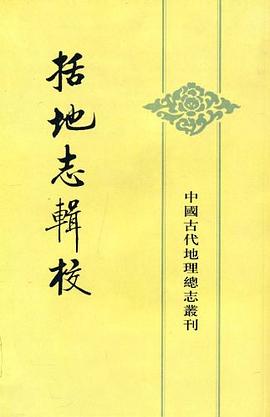 括地志輯校
中國古代地理總志叢刊